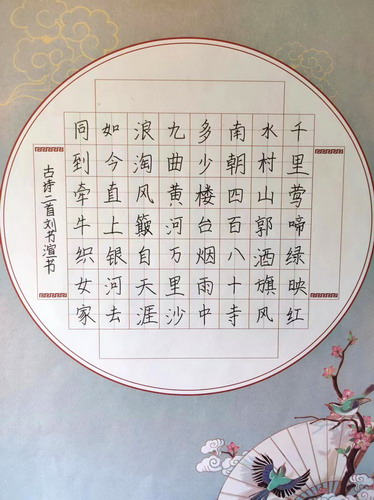 千里莺啼绿映红
水村山郭酒旗风
南朝四百八十寺
多少楼台烟雨中
九曲黄河万里沙
浪淘风簸自天涯
如今直上银河去
同到牵牛织女家
古诗二首刘书渲书